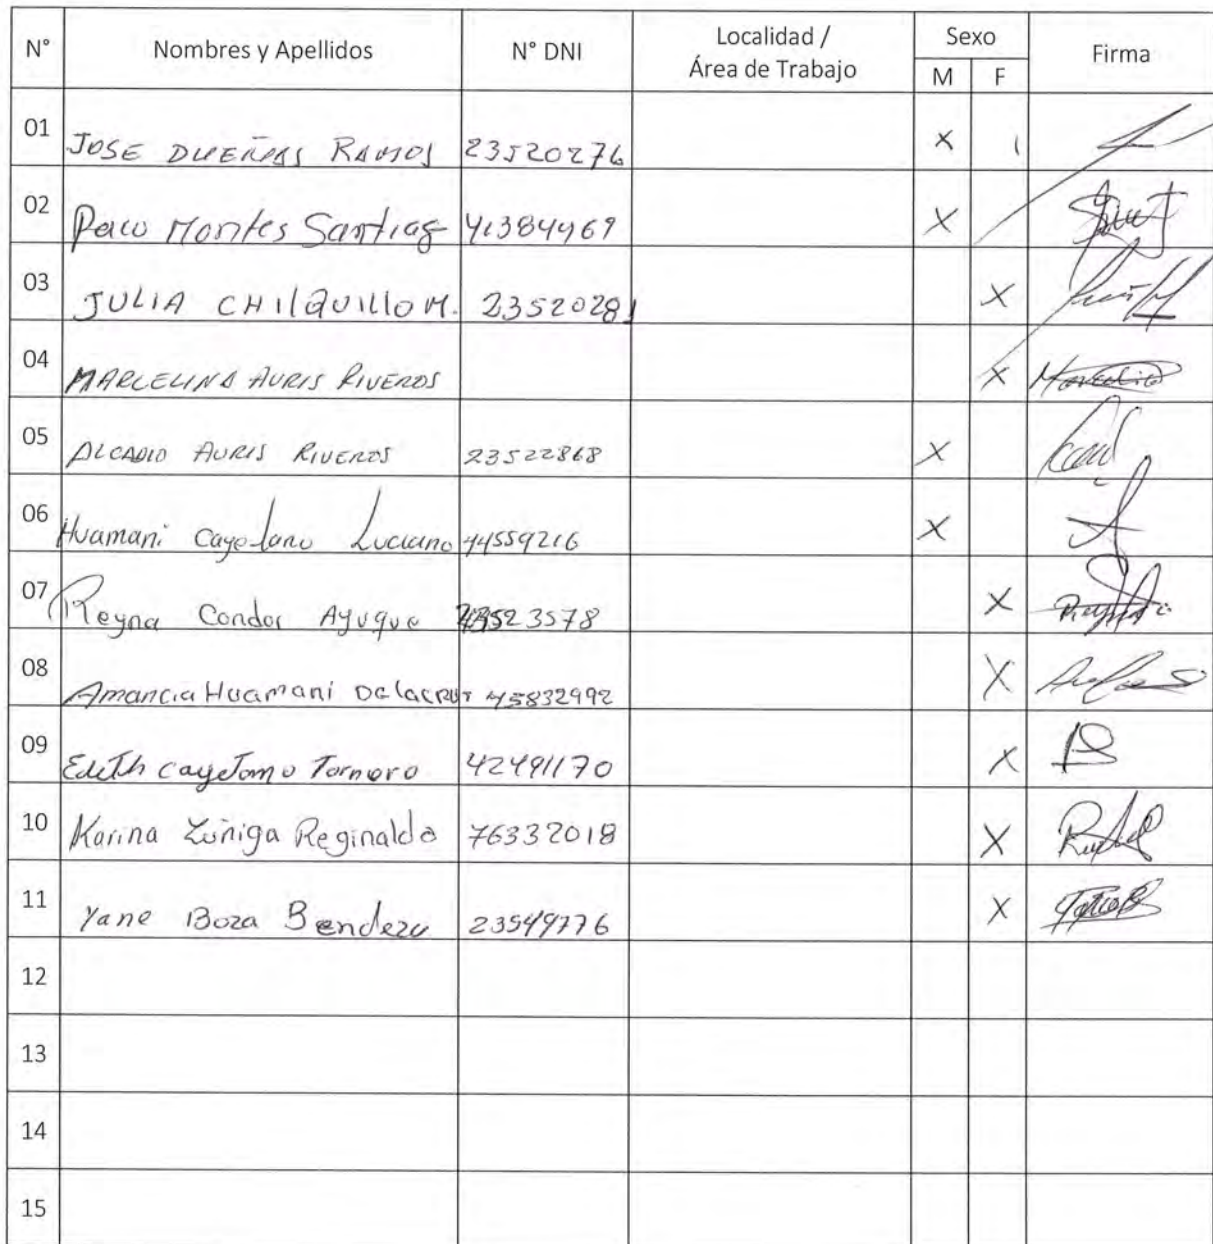 N° Nombres y Apellidos N° DNI Localidad / Área de Trabajo Sexo M F Firma
01 JOSE DUEÑAS RAMOS 23520276 X
02 Paco Montes Santiag 41384469 X
03 JULIA CHILQUILLO M. 23520281 X
04 MARCELINA AURIS RIVEROS X
05 ALCADIO AURIS RIVEROS 23522868 X
06 Huamani Cayetano Luciano 44559216 X
07 Reyna Condor Ayuque 23523578 X
08 Amancia Huamani Delacruz 45832992 X
09 Edith Cayetano Tornero 42491170 X
10 Karina Zúñiga Reginaldo 76332018 X
11 Yane Boza Bendezu 23549776 X
12
13
14
15